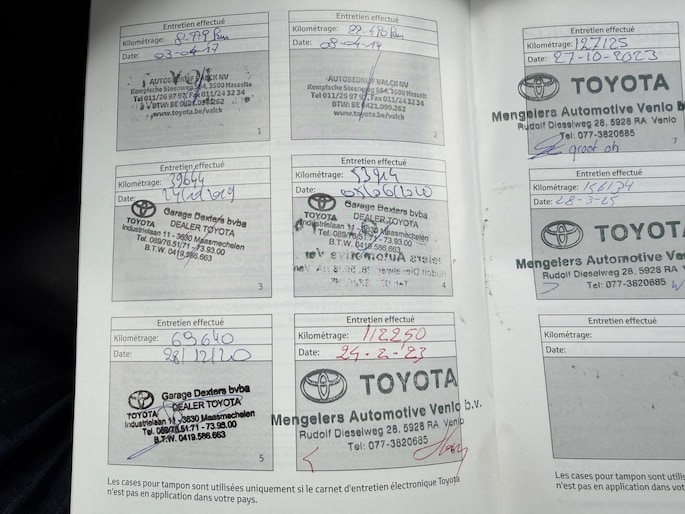 Entretien effectué
Kilométrage: 8779 km
Date: 03-04-17
AUTOBEDRIJF VALCK NV
Kempische Steenweg 364, 3500 Hasselt
Tel 011/26 97 97, Fax 011/24 32 34
BTW: BE 0421.090.262
www.toyota.be/valck
1
Entretien effectué
Kilométrage:
Date:
AUTOBEDRIJF VALCK NV
Kempische Steenweg 364, 3500 Hasselt
Tel 011/26 97 97, Fax 011/24 32 34
BTW: BE 0421.090.262
www.toyota.be/valck
2
Entretien effectué
Kilométrage: 39644
Date:
TOYOTA
Garage Dexters bvba
DEALER TOYOTA
Industrielaan 11 - 3630 Maasmechelen
Tel. 089/76.51.71 - 73.93.00
B.T.W. 0419.586.663
3
Entretien effectué
Kilométrage: 53914
Date:
TOYOTA
Garage Dexters bvba
DEALER TOYOTA
Industrielaan 11 - 3630 Maasmechelen
Tel. 089/76.51.71 - 73.93.00
B.T.W. 0419.586.663
4
Entretien effectué
Kilométrage: 69640
Date: 28/12/20
TOYOTA
Garage Dexters bvba
DEALER TOYOTA
Industrielaan 11 - 3630 Maasmechelen
Tel. 089/76.51.71 - 73.93.00
B.T.W. 0419.586.663
5
Entretien effectué
Kilométrage: 112250
Date: 24-2-'23
TOYOTA
Mengelers Automotive Venlo b.v.
Rudolf Dieselweg 28, 5928 RA Venlo
Tel: 077-3820685
Les cases pour tampon sont utilisées uniquement si le carnet d'entretien électronique Toyota
n'est pas en application dans votre pays.
Entretien effectué
Kilométrage: 127125
Date: 27-10-2023
TOYOTA
Mengelers Automotive Venlo b
Rudolf Dieselweg 28, 5928 RA Venlo
Tel: 077-3820685
groot oh
7
Entretien effectué
Kilométrage: 156134
Date: 28-3-25
TOYOTA
Mengelers Automotive Ven
Rudolf Dieselweg 28, 5928 RA Ven
Tel: 077-3820685
Entretien effectué
Kilométrage:
Date:
Les cases pour tampon sont utilisées
n'est pas en application dans votre p